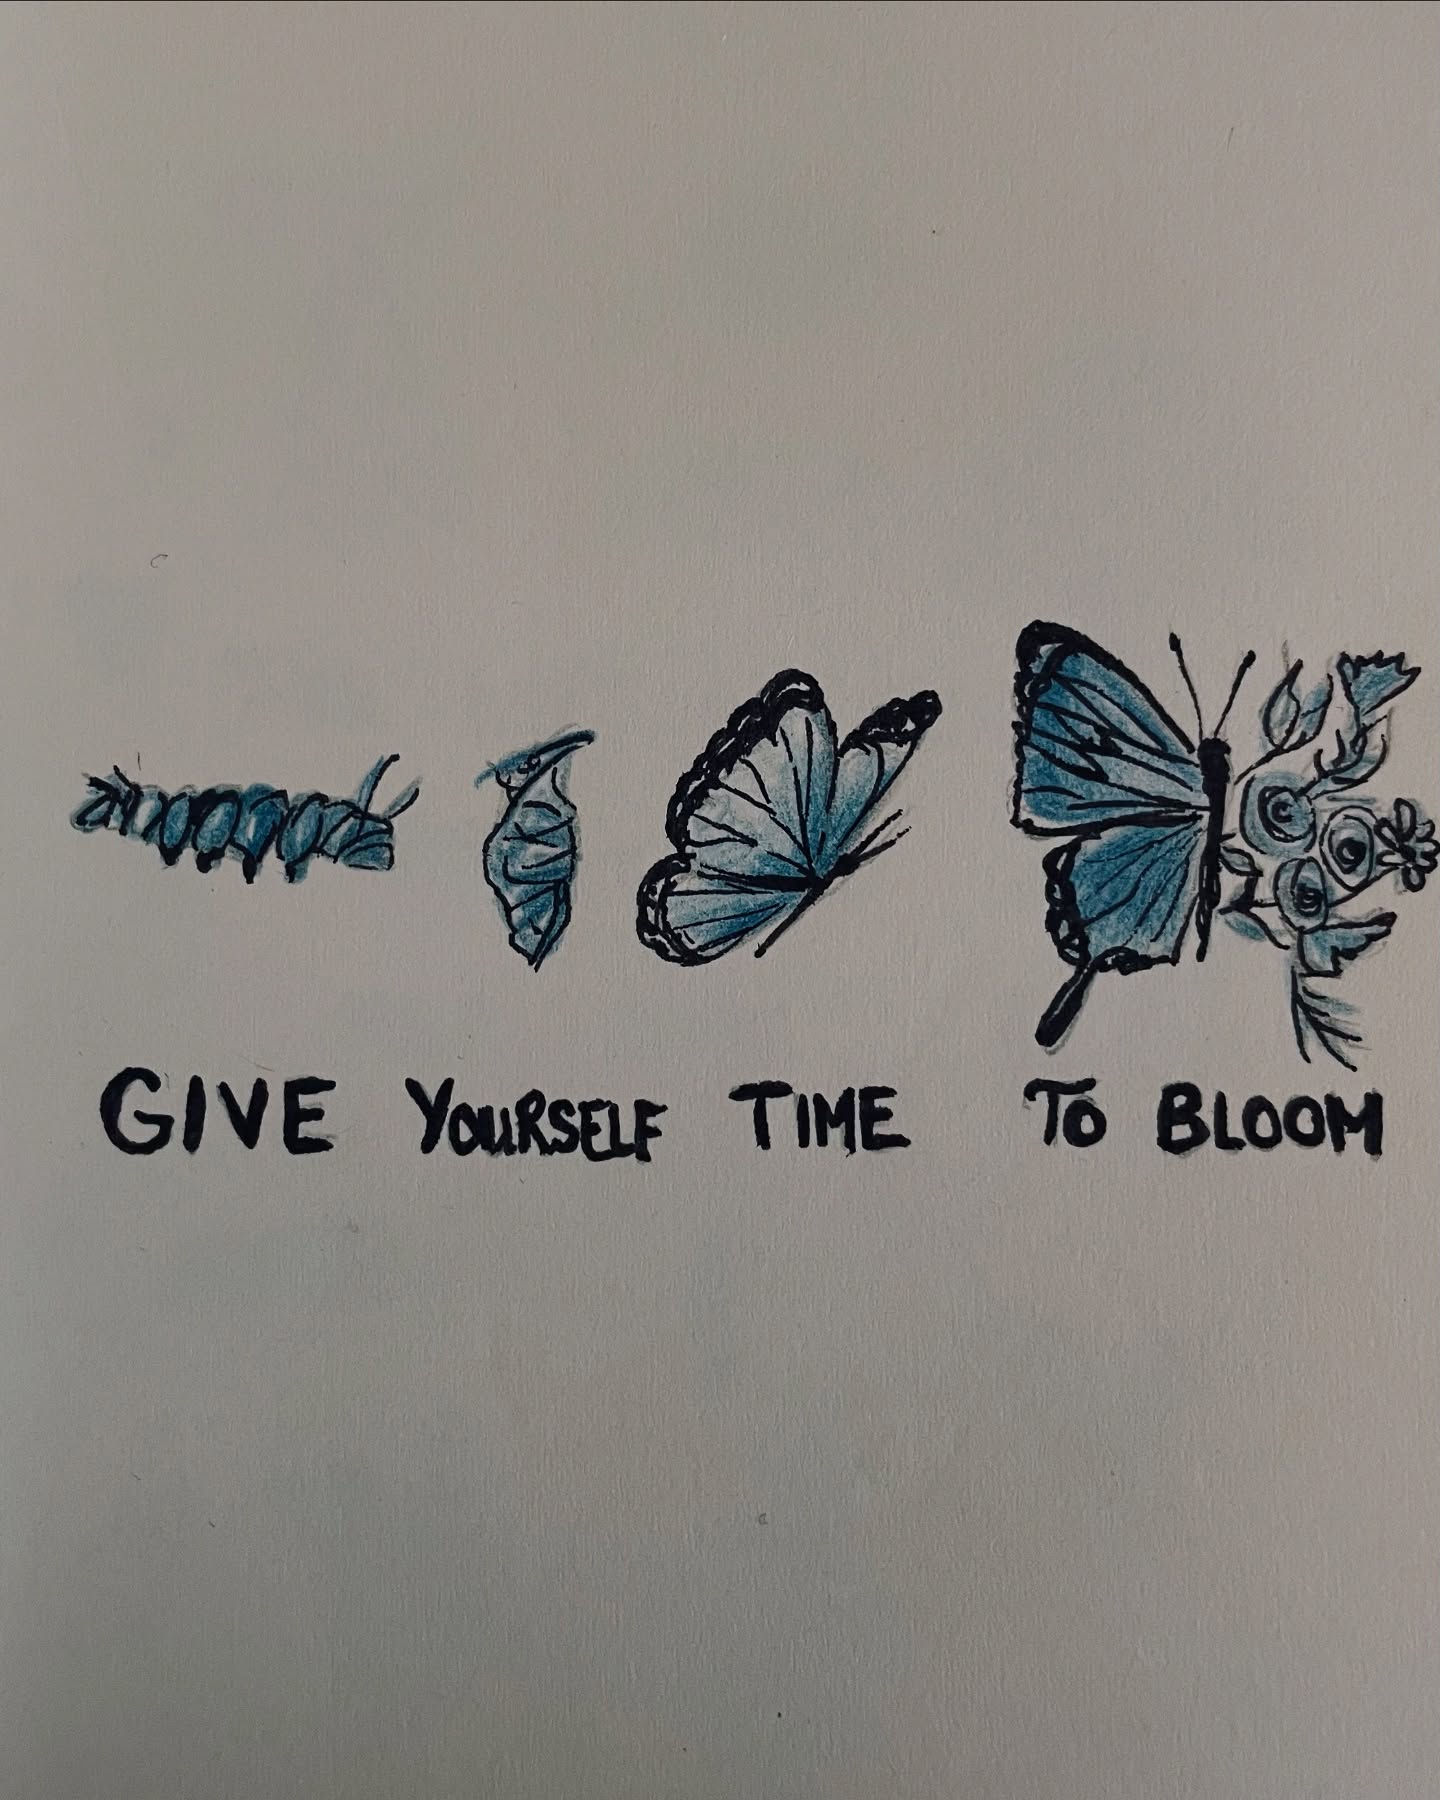 GIVE YOURSELF TIME TO BLOOM